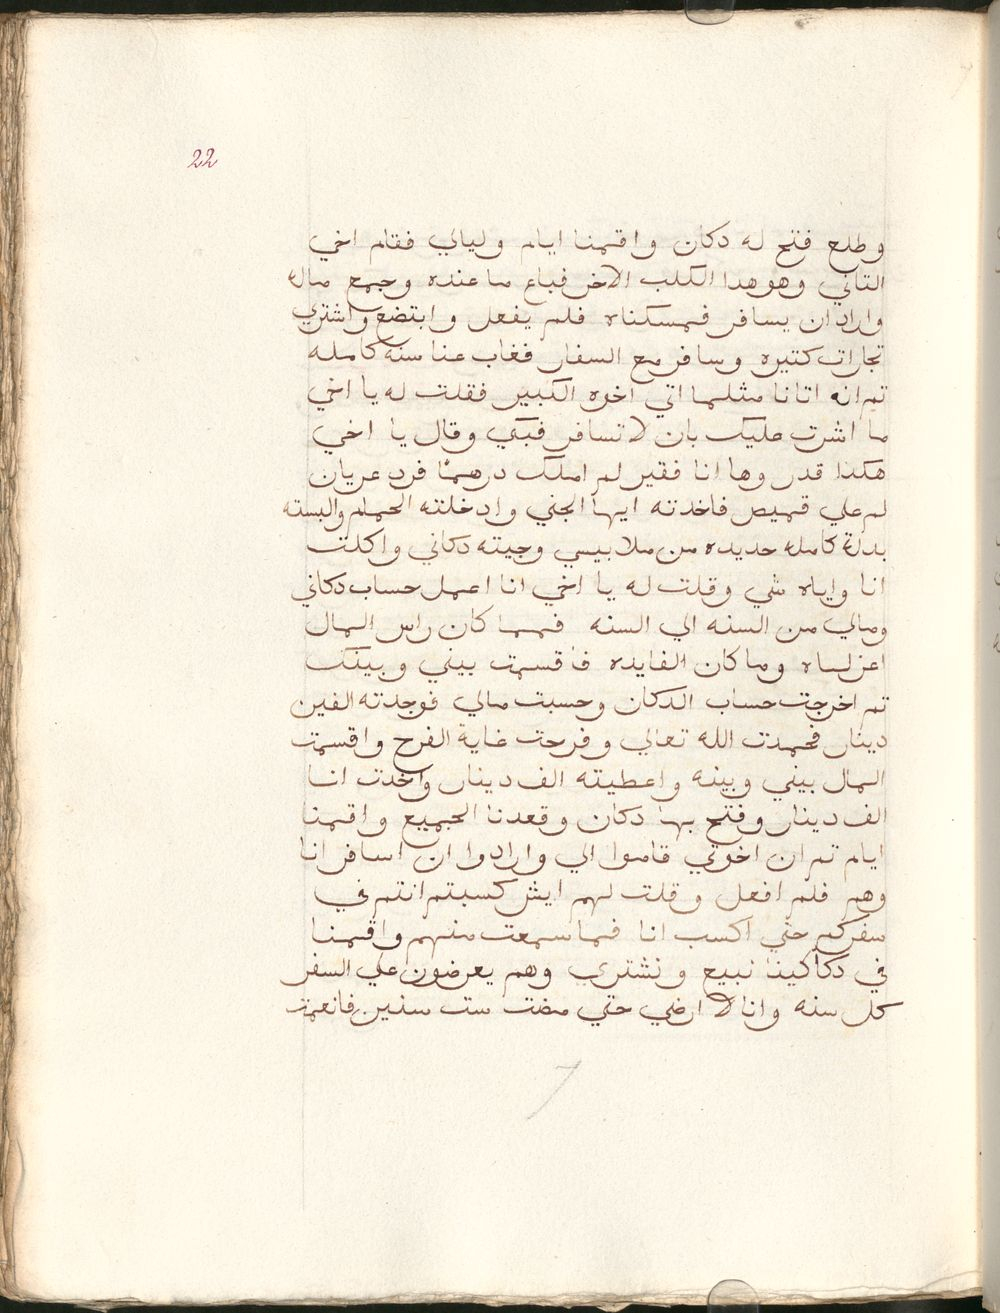 22
وطلع فتح له دكان واقمنا ايام وليالي فقام اخي
التاني وهو هدا الكلب الاخر فباع ما عنده وجمع ماله
واراد ان يسافر فمسكناه فلم يفعل وابتضع واشتري
تجارات كتيره وسافر مع السفار فغاب عنا سنه كامله
تم انه اتانا مثلما اتي اخوه الكبير فقلت له يا اخي
ما اشرت عليك بان لا تسافر فبكي وقال يا اخي
هكدا قدر وها انا فقير لم املك درهمًا فرد عريان
لم علي قميص فاخدته ايها الجني وادخلته الحمام والبسته
بدلة كامله جديده من ملابيسي وجيته دكاني واكلت
انا واياه شي وقلت له يا اخي انا اعمل حساب دكاني
ومالي من السنه الي السنه فمهما كان راس المال
اعزلناه وما كان الفايده فاقسمت بيني وبينك
تم اخرجت حساب الدكان وحسبت مالي فوجدته الفين
دينار فحمدت الله تعالي وفرحت غاية الفرح واقسمت
المال بيني وبينه واعطيته الف دينار واخدت انا
الف دينار وفتح بها دكان وقعدنا الجميع واقمنا
ايام تم ان اخوتي قاموا الي وارادوا ان اسافر انا
وهم فلم افعل وقلت لهم ايش كسبتم انتم في
سفركم حتي اكسب انا فما سمعت منهم واقمنا
في دكاكينا نبيع ونشتري وهم يعرضون علي السفر
كل سنه وانا لا ارضي حتي مضت ست سنين فانعمت
7